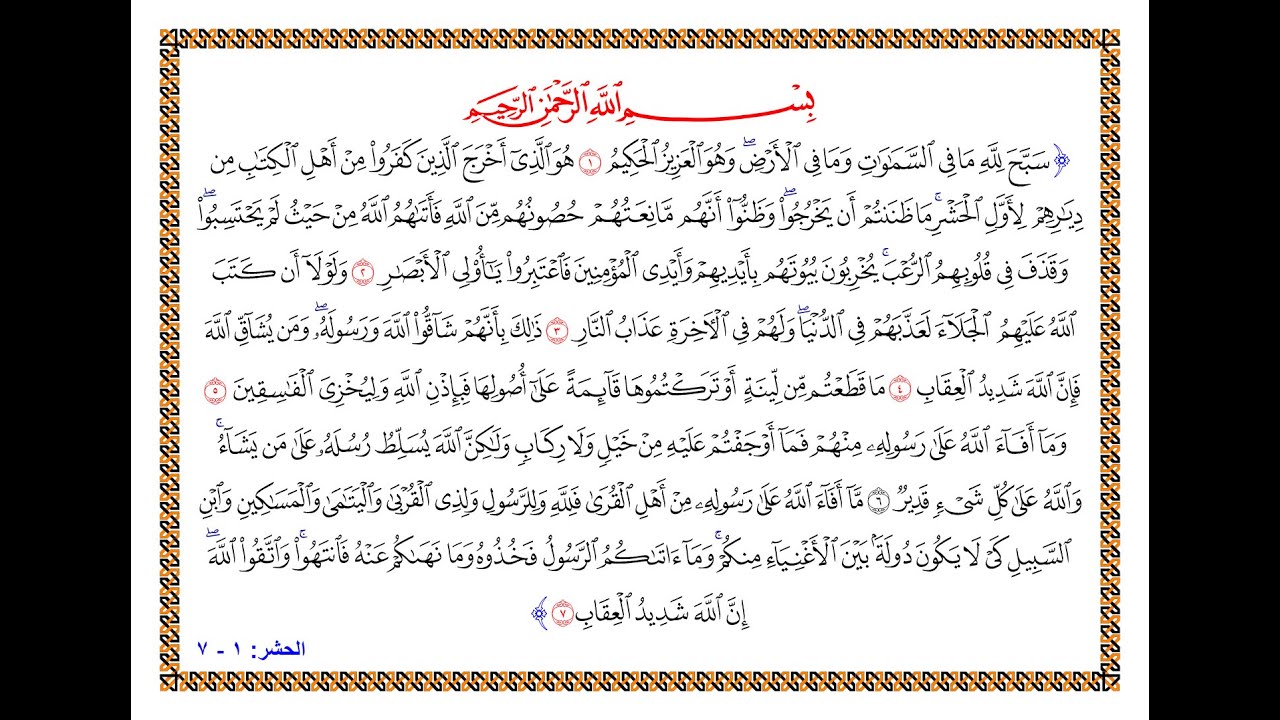 بِسْمِ ٱللَّهِ ٱلرَّحْمَٰنِ ٱلرَّحِيمِ
﴿سَبَّحَ لِلَّهِ مَا فِي ٱلسَّمَٰوَٰتِ وَمَا فِي ٱلْأَرْضِۖ وَهُوَ ٱلْعَزِيزُ ٱلْحَكِيمُ ١ هُوَ ٱلَّذِيٓ أَخْرَجَ ٱلَّذِينَ كَفَرُوا۟ مِنْ أَهْلِ ٱلْكِتَٰبِ مِن
دِيَٰرِهِمْ لِأَوَّلِ ٱلْحَشْرِۚ مَا ظَنَنتُمْ أَن يَخْرُجُوا۟ۖ وَظَنُّوٓا۟ أَنَّهُم مَّانِعَتُهُمْ حُصُونُهُم مِّنَ ٱللَّهِ فَأَتَىٰهُمُ ٱللَّهُ مِنْ حَيْثُ لَمْ يَحْتَسِبُوا۟ۖ
وَقَذَفَ فِي قُلُوبِهِمُ ٱلرُّعْبَۚ يُخْرِبُونَ بُيُوتَهُم بِأَيْدِيهِمْ وَأَيْدِي ٱلْمُؤْمِنِينَ فَٱعْتَبِرُوا۟ يَٰٓأُو۟لِي ٱلْأَبْصَٰرِ ٢ وَلَوْلَآ أَن كَتَبَ
ٱللَّهُ عَلَيْهِمُ ٱلْجَلَآءَ لَعَذَّبَهُمْ فِي ٱلدُّنْيَاۖ وَلَهُمْ فِي ٱلْـَٔاخِرَةِ عَذَابُ ٱلنَّارِ ٣ ذَٰلِكَ بِأَنَّهُمْ شَآقُّوا۟ ٱللَّهَ وَرَسُولَهُۥۖ وَمَن يُشَآقِّ ٱللَّهَ
فَإِنَّ ٱللَّهَ شَدِيدُ ٱلْعِقَابِ ٤ مَا قَطَعْتُم مِّن لِّينَةٍ أَوْ تَرَكْتُمُوهَا قَآئِمَةً عَلَىٰٓ أُصُولِهَا فَبِإِذْنِ ٱللَّهِ وَلِيُخْزِيَ ٱلْفَٰسِقِينَ ٥
وَمَآ أَفَآءَ ٱللَّهُ عَلَىٰ رَسُولِهِۦ مِنْهُمْ فَمَآ أَوْجَفْتُمْ عَلَيْهِ مِنْ خَيْلٍ وَلَا رِكَابٍ وَلَٰكِنَّ ٱللَّهَ يُسَلِّطُ رُسُلَهُۥ عَلَىٰ مَن يَشَآءُۚ
وَٱللَّهُ عَلَىٰ كُلِّ شَيْءٍ قَدِيرٌ ٦ مَّآ أَفَآءَ ٱللَّهُ عَلَىٰ رَسُولِهِۦ مِنْ أَهْلِ ٱلْقُرَىٰ فَلِلَّهِ وَلِلرَّسُولِ وَلِذِي ٱلْقُرْبَىٰ وَٱلْيَتَٰمَىٰ وَٱلْمَسَٰكِينِ وَٱبْنِ
ٱلسَّبِيلِ كَيْ لَا يَكُونَ دُولَةًۢ بَيْنَ ٱلْأَغْنِيَآءِ مِنكُمْۚ وَمَآ ءَاتَىٰكُمُ ٱلرَّسُولُ فَخُذُوهُ وَمَا نَهَىٰكُمْ عَنْهُ فَٱنتَهُوا۟ۚ وَٱتَّقُوا۟ ٱللَّهَۖ
إِنَّ ٱللَّهَ شَدِيدُ ٱلْعِقَابِ ٧﴾
الحشر: ١ - ٧